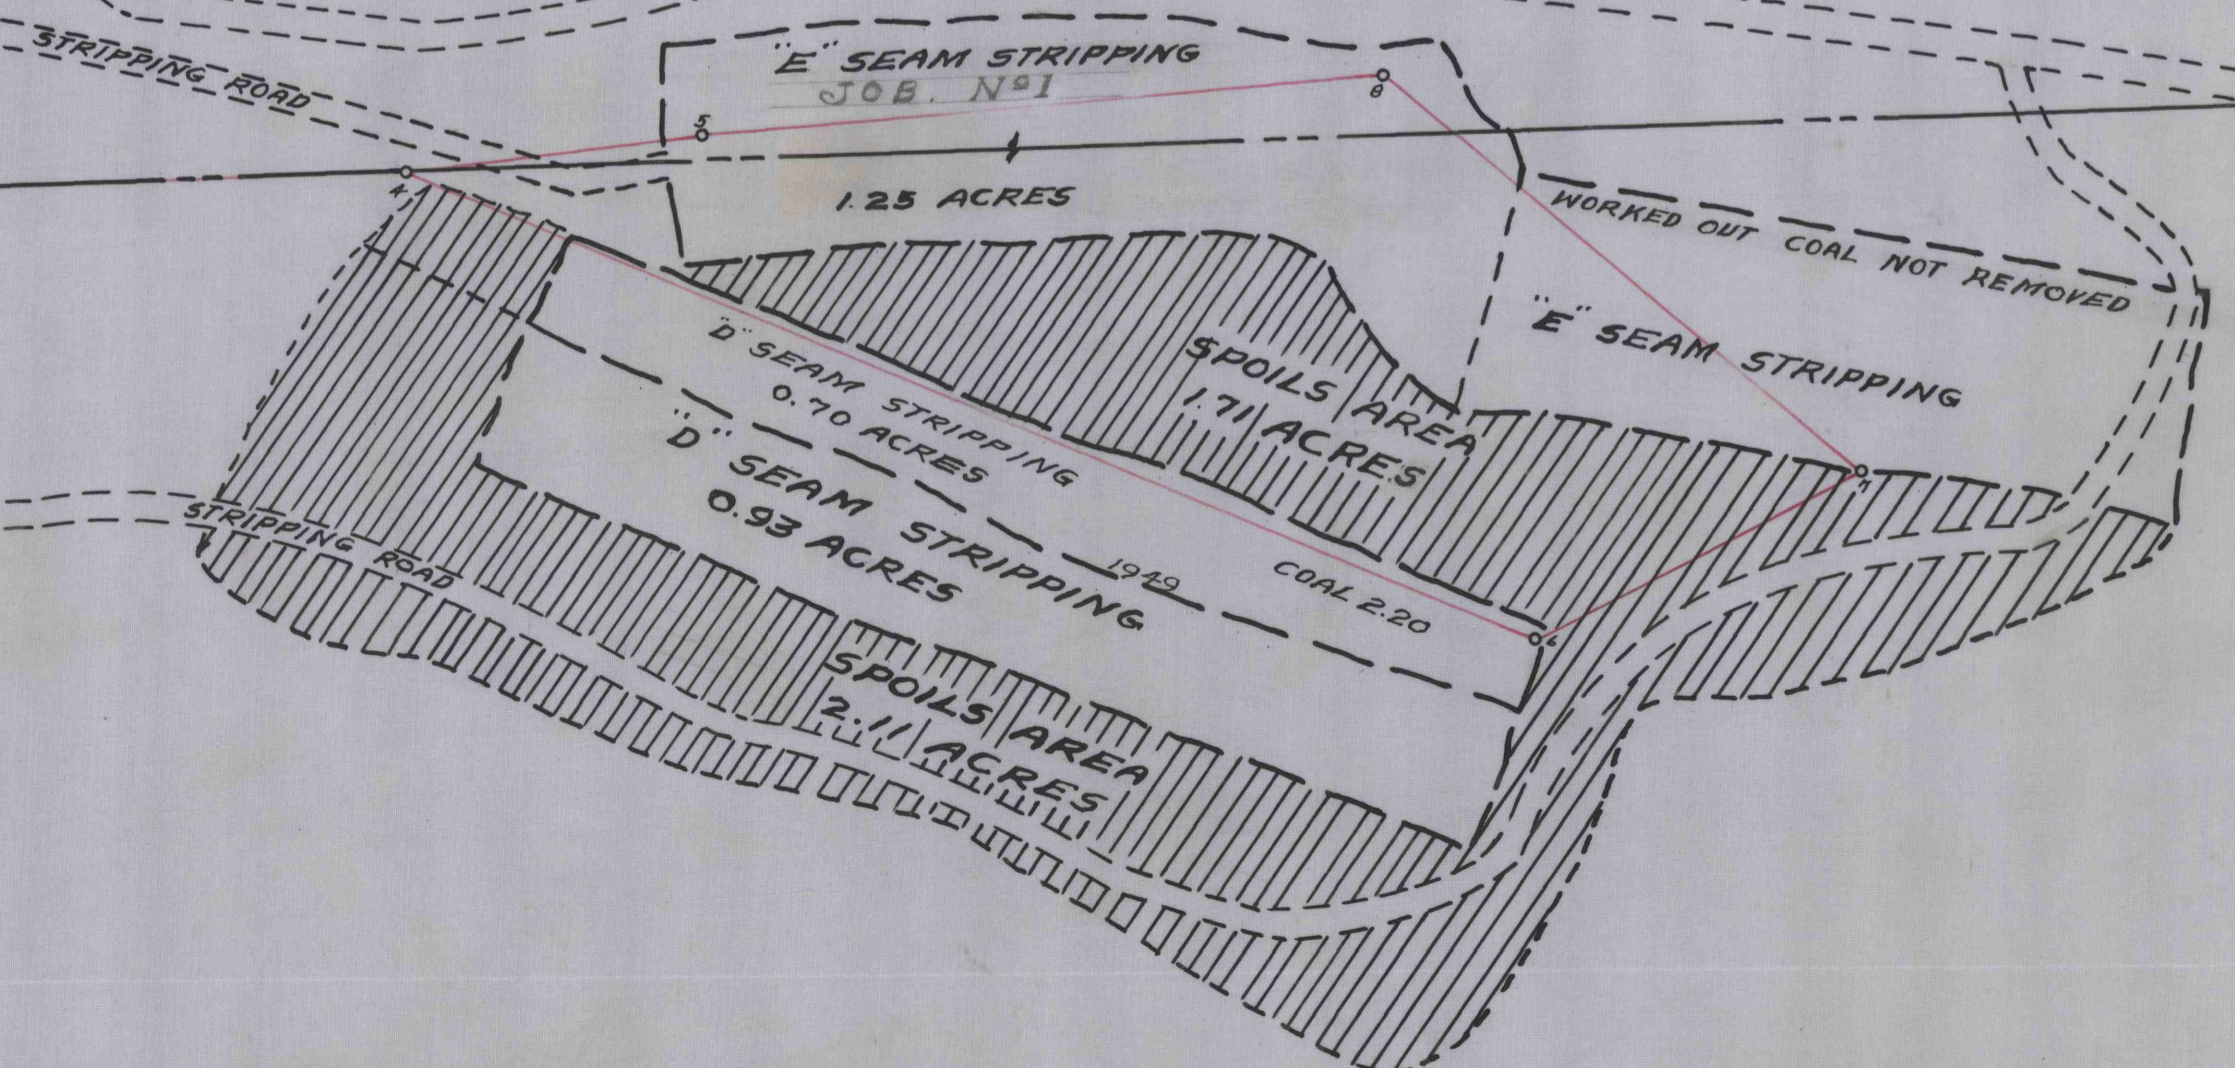 STRIPPING ROAD
"E" SEAM STRIPPING
JOB. No1
8
5
4
1.25 ACRES
WORKED OUT COAL NOT REMOVED
"E" SEAM STRIPPING
"D" SEAM STRIPPING
0.70 ACRES
SPOILS AREA
1.71 ACRES
7
"D" SEAM STRIPPING
0.93 ACRES
1949
COAL 2.20
6
STRIPPING ROAD
SPOILS AREA
2.11 ACRES